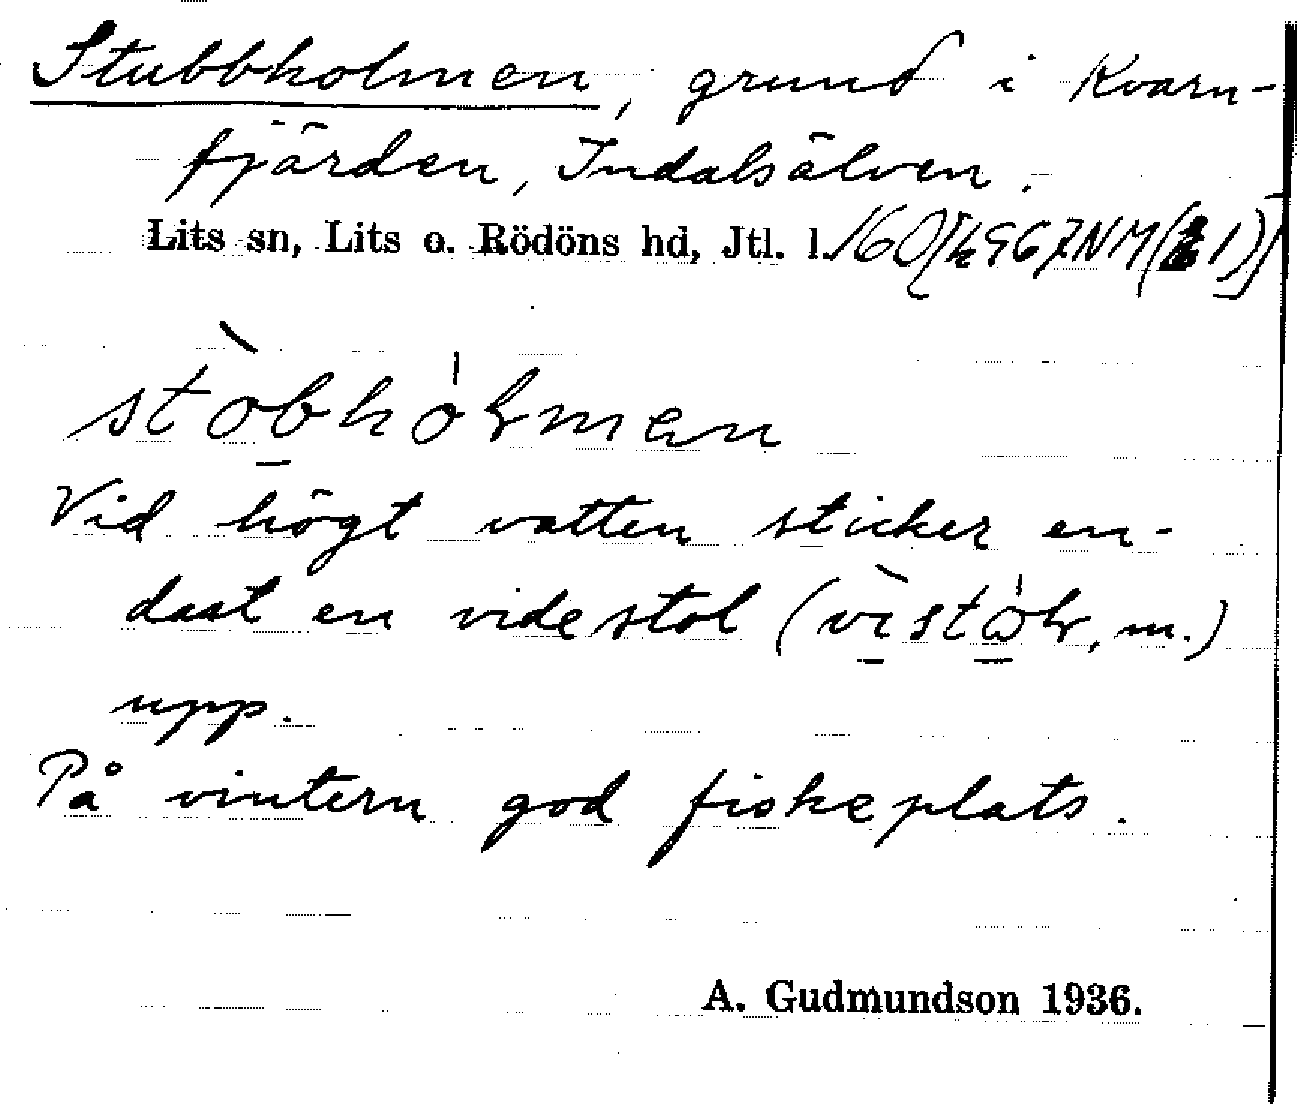 Stubbholmen, grund i Kvarn-
fjärden, Indalsälven.
Lits sn, Lits o. Rödöns hd, Jtl. l.
Vid högt vatten sticker en-
dast en videstol
upp.
På vintern god fiskeplats.
A. Gudmundson 1936.